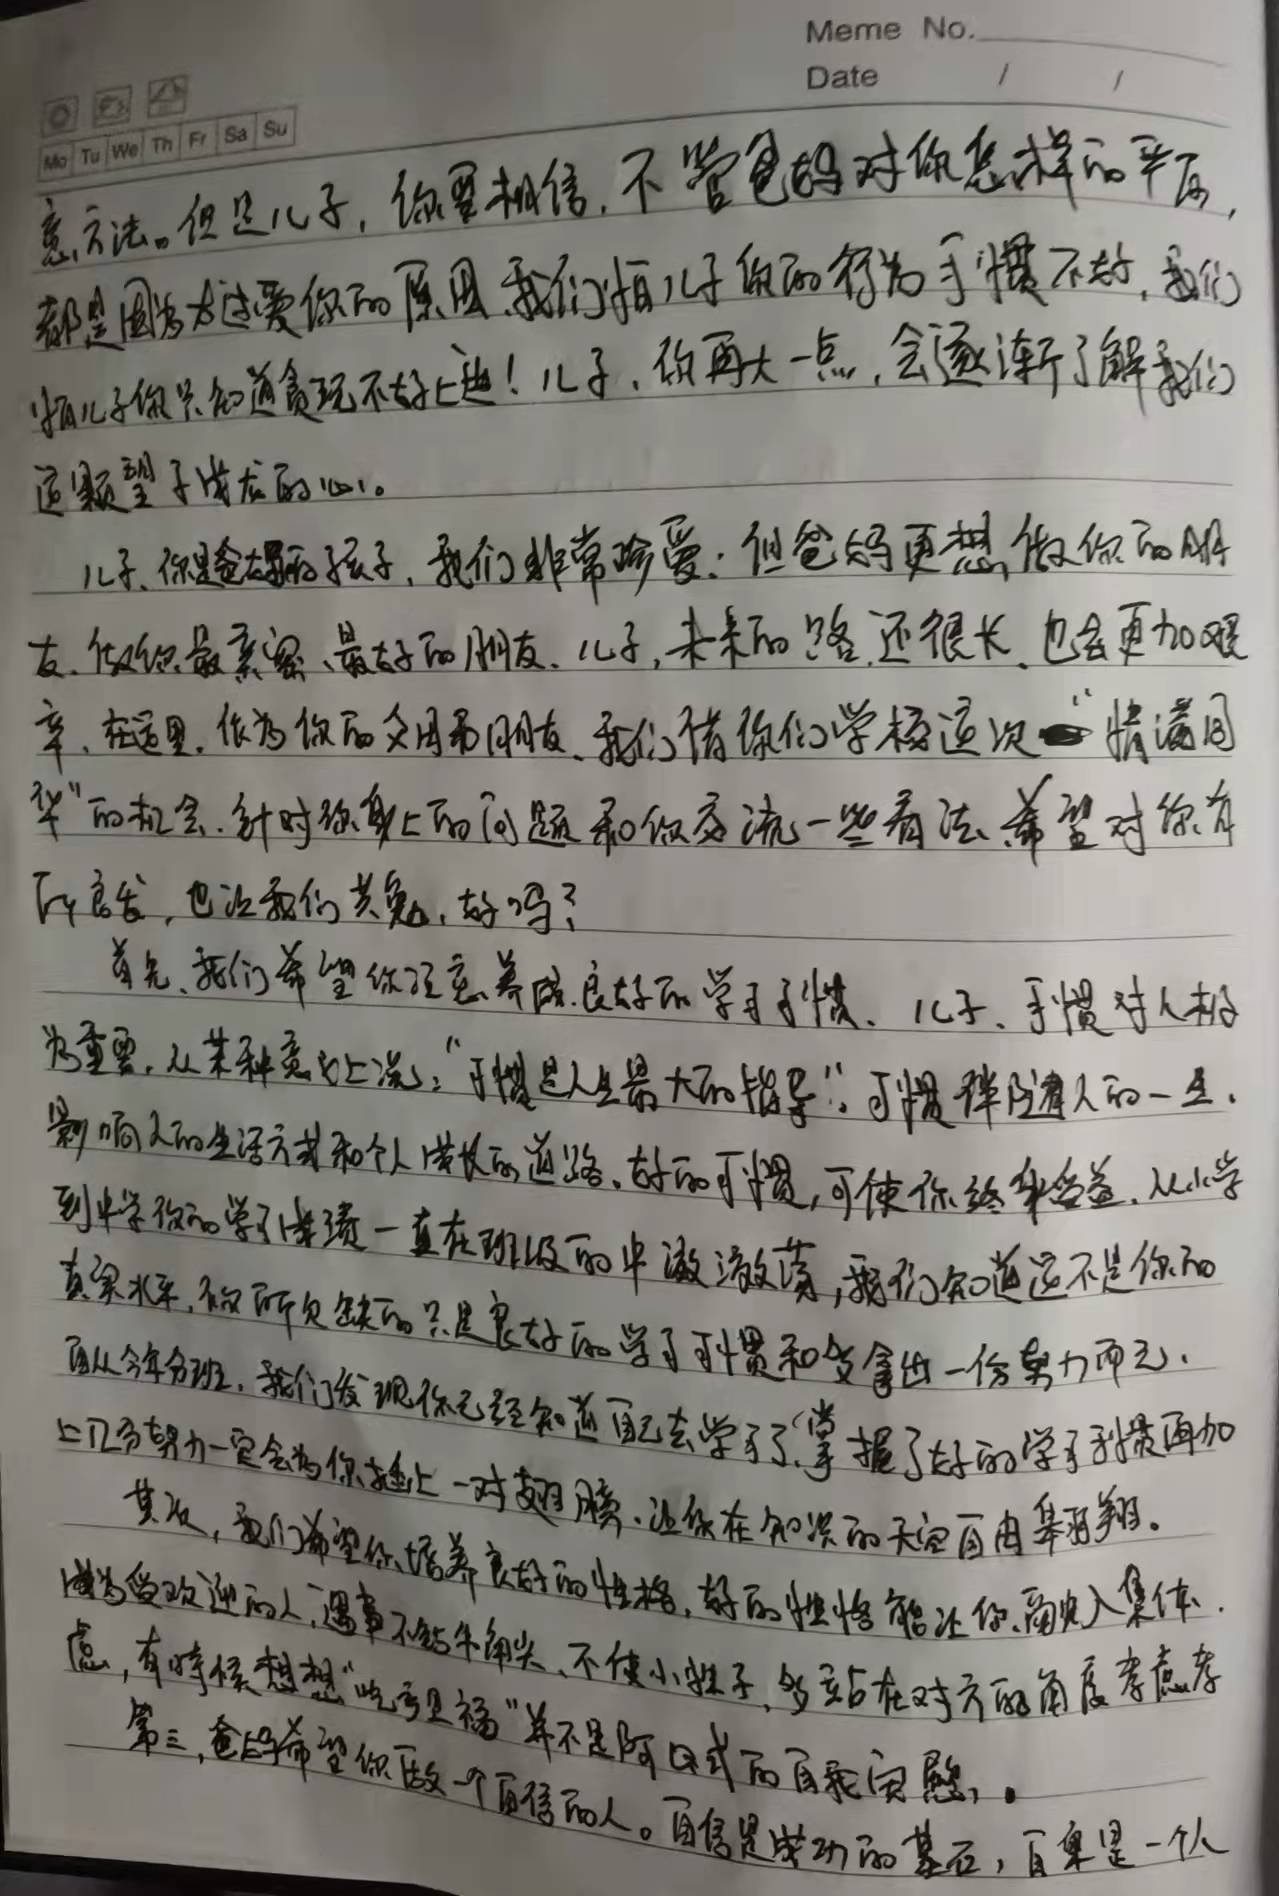 Meme No.
Date / /
Mo Tu We Th Fr Sa Su
意方法。但是儿子，你要相信，不管爸妈对你怎样的
都是因为太过爱你的原因，我们怕儿子你的行为习惯不好，我们
怕儿子你只知道贪玩不好上进！儿子，你再大一点，会逐渐了解我们
这颗望子成龙的心。
儿子、你是爸妈的孩子，我们非常珍爱；但爸妈更想做你的朋
友、做你最亲密、最好的朋友、儿子，未来的路还很长、也会更加艰
辛、在这里，作为你的父母和朋友、我们借你们学校这次“情满
的机会、针对你身上的问题和你交流一些看法、希望对你有
所启发，也让我们共勉，好吗？
首先、我们希望你注意养成良好的学习习惯、儿子、习惯对人极
为重要，从某种意义上说：“习惯是人生最大的指导”。习惯伴随着人的一生、
影响人的生活方式和个人成长的道路、好的习惯，可使你终身受益、从小学
到中学你的学习成绩一直在班级的中激激荡，我们知道这不是你的
真实水平，你所欠缺的只是良好的学习习惯和多拿出一份努力而已、
自从今年分班，我们发现你已经知道自己去学习了、掌握了好的学习习惯再加
上几分努力一定会为你插上一对翅膀、让你在知识的天空自由翱翔。
其次，我们希望你培养良好的性格，好的性格能让你融入集体、
成为受欢迎的人，遇事不钻牛角尖、不使小性子，多站在对方的角度考虑考
虑，有时候想想“吃亏是福”并不是阿Q式的自我安慰。
第三，爸妈希望你做一个自信的人。自信是成功的基石，自卑是一个人